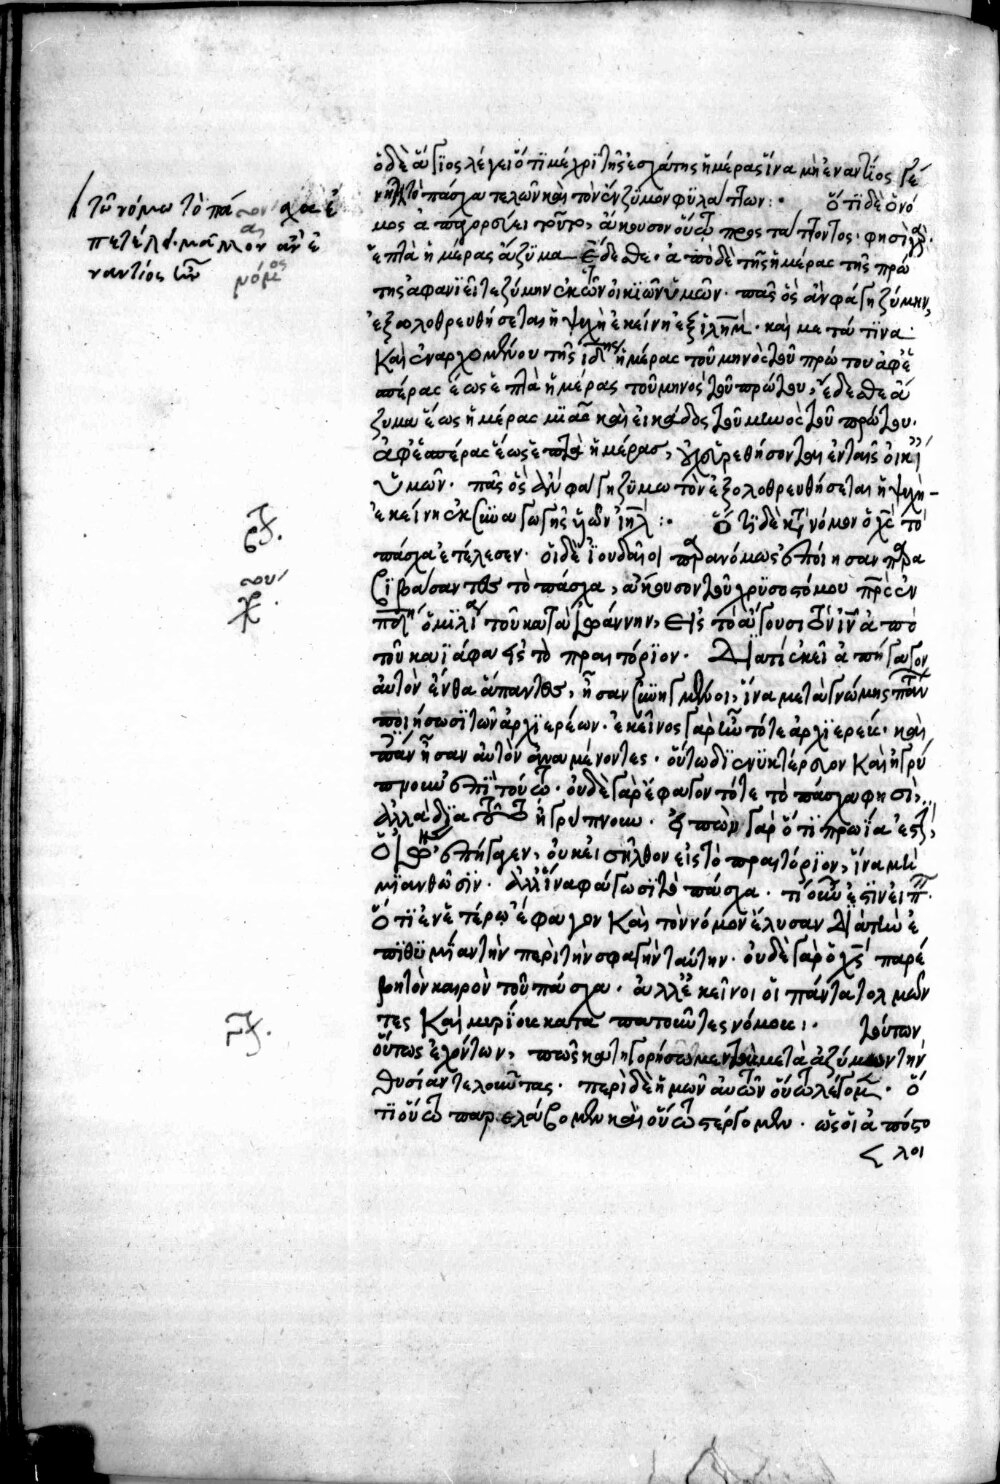 ὁ δὲ ἅγϊος λέγει ὅτϊ μέχρϊ τῆς ἐσχάτης ἡμέρας ἵνα μὴ ἐναντίος γέ
νηται τὸ πάσχα τελῶν καὶ τὸν ἄνζϋμον φϋλάττων :· ὅτϊ δὲ ὁ νό
μος ἀπαγορεύει τοῦτο, ἄκουσον οὕτω πρὸς ταῦτα φησὶ γὰρ·
ἑπτὰ ἡμέρας ἄζϋμα ἔδεσθε· ἀπὸ δὲ τῆς ἡμέρας τῆς πρώ
της ἀφανιεῖτε ζύμην ἐκ τῶν οἰκϊῶν ὑμῶν· πᾶς ὃς ἂν φάγη ζύμην,
ἐξολοθρευθήσεται ἡ ψυχὴ ἐκείνη ἐξ ἰηλ· καὶ μετά τϊνα·
Καὶ ἐναρχομένου τῆς ιδης ἡμέρας τοῦ μηνὸς τοῦ πρώτου ἀφ' ἑ
σπέρας ἕως ἑπτὰ ἡμέρας τοῦ μηνὸς τοῦ πρώτου, ἔδεσθε ἄ
ζυμα ἕως ἡμέρας μϊᾶς καὶ εἰκάδος τοῦ μηνὸς τοῦ πρώτου·
ἀφ' ἑσπέρας ἕως ἑπτὰ ἡμέρας, οὐχ εὑρεθήσονται ἐν ταῖς οἰκϊ
ὑμῶν· πᾶς ὃς ἂν φάγη ζϋμωτὸν ἐξολοθρευθήσεται ἡ ψυχὴ
ἐκείνη ἐκ συναγωγῆς ὑιῶν ἰηλ :· ὅτϊ δὲ κατὰ νόμον ὁ χς τὸ
πάσχα ἐτέλεσεν· οἱ δὲ ἰουδαῖοι παρανόμως ἐποίησαν παρα
βϊβάσαντες τὸ πάσχα, ἄκουσον τοῦ χρϋσοστόμου πρὸς ἐν
ὁμιλία τοῦ κατὰ ἰωάννην, εἰς τὸ ἄγουσι τὸν ιν ἀπὸ
τοῦ καϊάφα εἰς τὸ πραιτόρϊον· Διατί ἐκεῖ ἀπήγαγον
αὐτὸν ἔνθα ἅπαντες, ἦσαν συνηγμένοι, ἵνα μετὰ γνώμης πάντα
ποιήσωσϊ τῶν ἀρχϊερέων· ἐκεῖνος γὰρ ἦν τότε ἀρχϊερεύς· καὶ
πάντες ἦσαν αὐτὸν ἀναμένοντες· οὕτω δϊενϋκτέρευον Καὶ ἠγρύ
πνουν ἐπϊ τούτω· οὐδὲ γὰρ ἔφαγον τότε τὸ πάσχα φησὶ,
ἀλλὰ δϊα τοῦτο ἠγρύπνουν· εἰπὼν γὰρ ὅτϊ πρωΐα ἐστὶ,
ἐπήγαγεν, οὐκ εἰσῆλθον εἰς τὸ πραιτόρϊον, ἵνα μὴ
μϊανθῶσϊν· ἀλλ' ἵνα φάγωσϊ τὸ πάσχα· τί οὖν ἔστϊν εἰπεῖν
ὅτϊ ἐν ἑτέρω ἔφαγον Καὶ τὸν νόμον ἔλυσαν Δϊὰ τὴν ἐ
πϊθϋμίαν τὴν περὶ τὴν σφαγὴν ταύτην· οὐδὲ γὰρ ὁ χς παρέ
βη τὸν καιρὸν τοῦ πάσχα· ἀλλ' ἐκεῖνοι οἱ πάντα τολμῶν
τες Καὶ μυρίους καταπατοῦντες νόμους :· τούτων
οὕτως ἐχόντων, πῶς κατηγορήσωμεν τοὺς μετὰ ἀζύμων τὴν
θυσίαν τελοῦντας· περὶ δὲ ἡμῶν αὐτῶν οὕτω λέγομεν· ὅ
τϊ οὕτω παρελάβομεν καὶ οὕτω στέργομεν· ὡς οἱ ἀπόστο
λοι
τῶ νόμω τὸ πάσχα ἐ
πετέλει· μᾶλλον ἂν ἐ
ναντίος ὢν